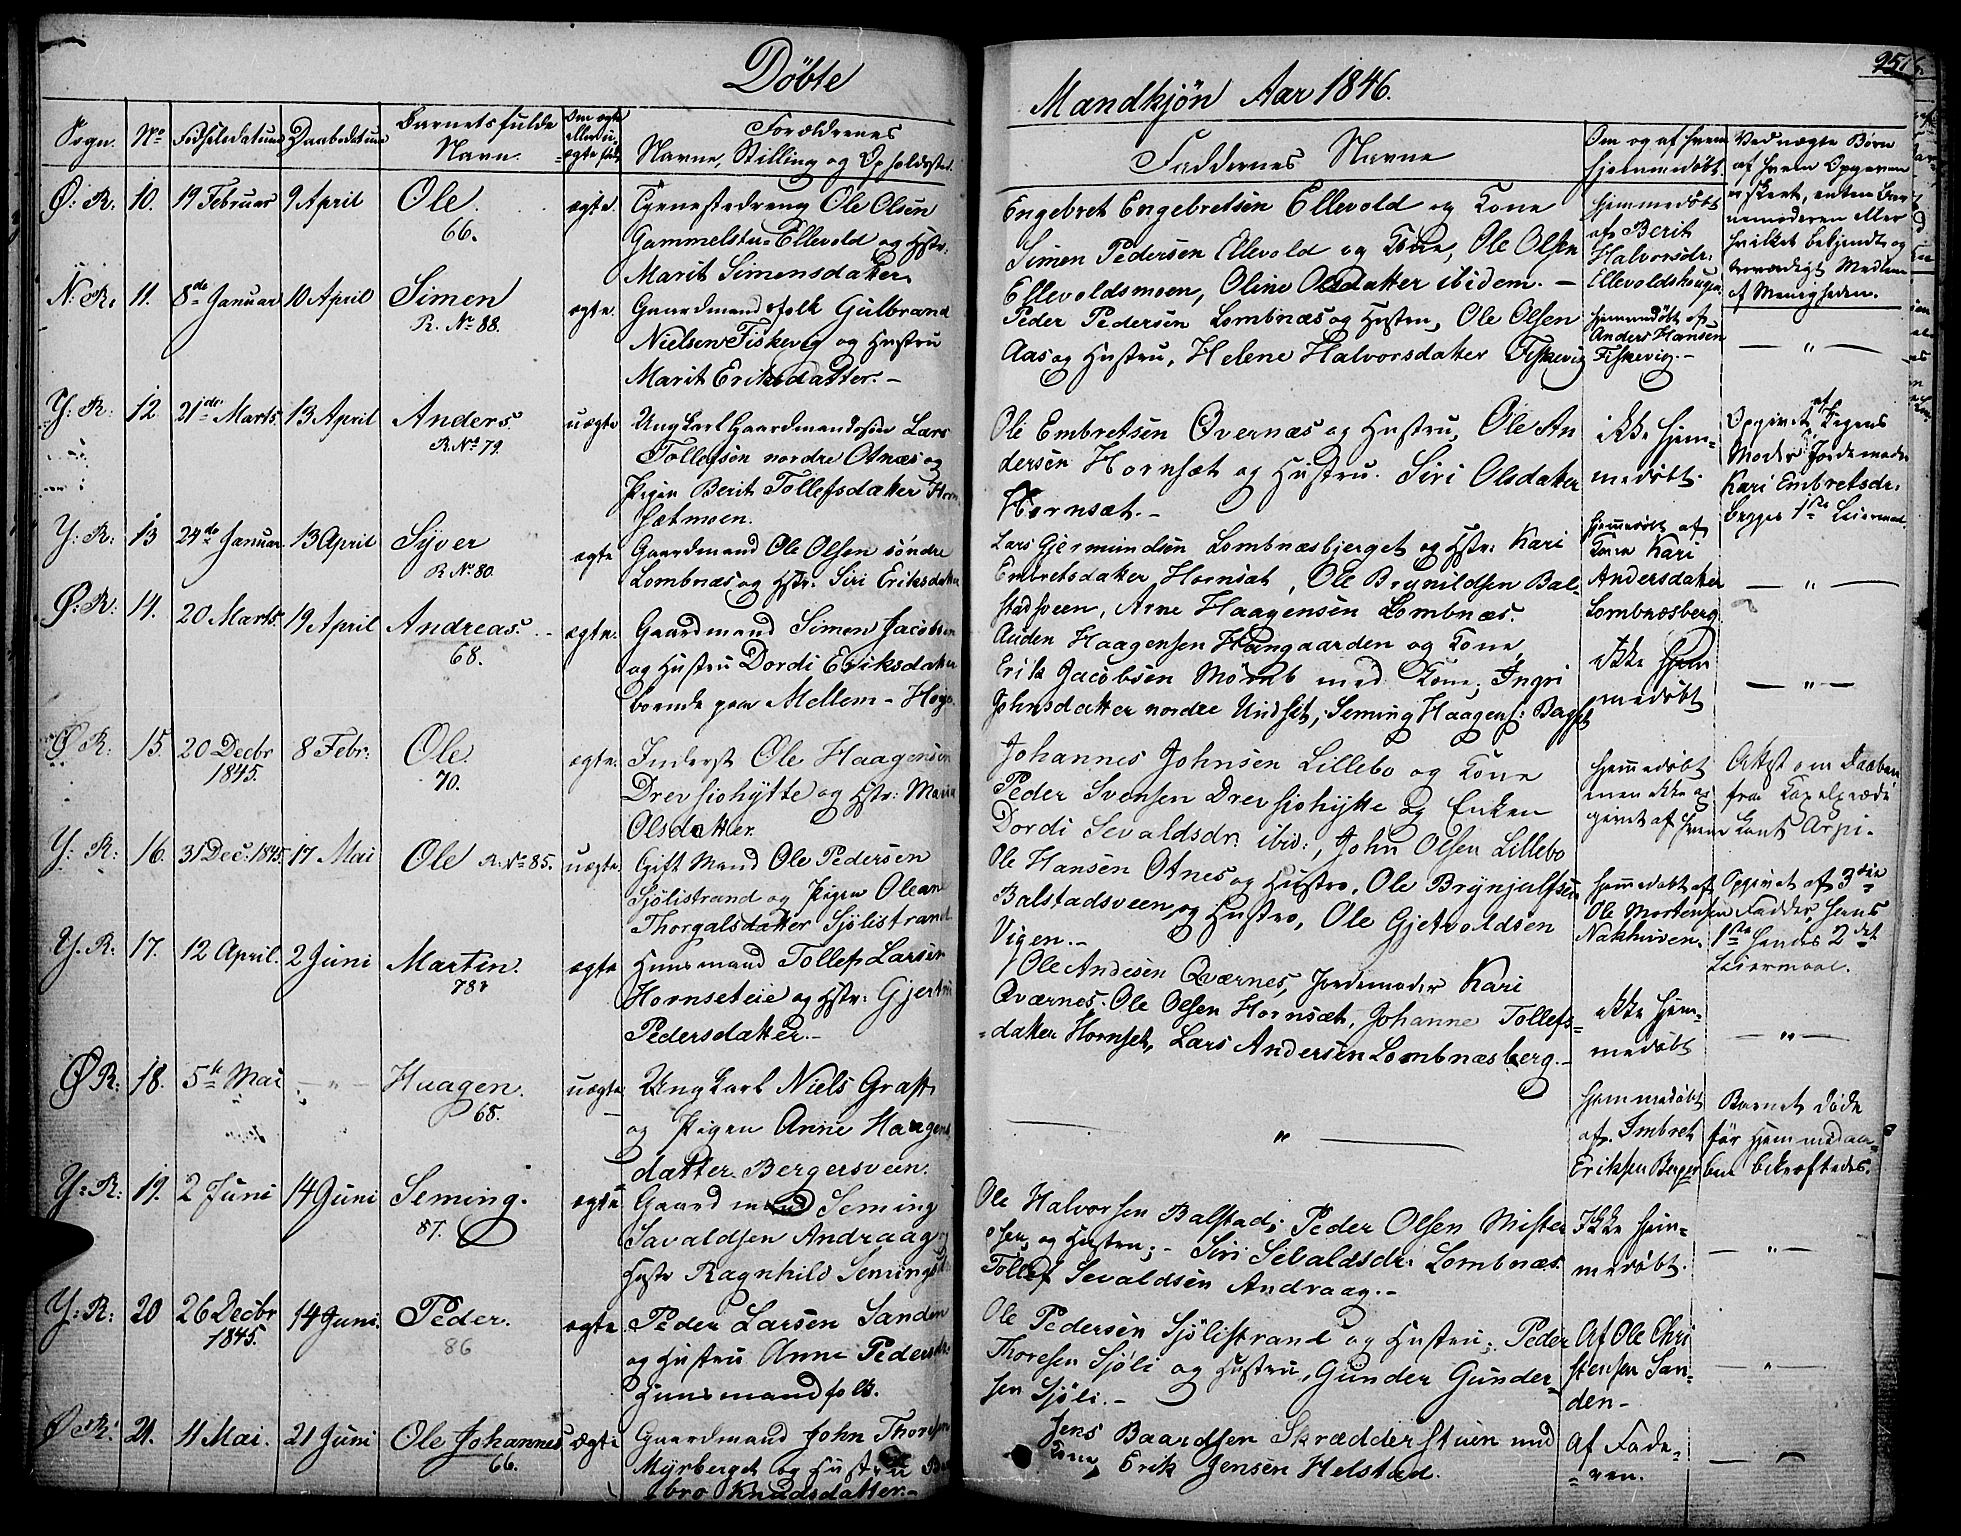 Døbte
Sogn. No Fødselsdatum Daabsdatum Barnets fulde Navn. Om ægte eller uægte født Forældrenes Navne, Stilling og Opholdssted
Ø: R: 10. 19 Februar 9 April Ole. 66. ægte. Tjenestedreng Ole Olsen
Gammelstu-Ellevold og Hstr:
Marit Simensdatter
N: R: 11. 8de Januar 10 April Simen R. No 88. ægte. Gaardmandsfolk Gulbrand
Nielsen Fiskevig og Hustru
Marit Eriksdatter.-
Y: R: 12 21de Marts. 13 April Anders. R No 79. uægte Ungkarl Gaardmandssøn Lars
Tollefsen nordre Otnæs og
Pigen Berit Tollefsdatter Horn
sætmoen.
Y: R: 13 24de Januar 13 April Syver R No 80. ægte Gaardmand Ole Olsen søndre
Lombnæs og Hstr. Siri Eriksdatter
Ø: R: 14. 20 Marts. 19 April Andreas. 68. ægte. Gaardmand Simen Jacobsen
og Hustru Dordi Eriksdatter
boende paa Mellem-
Ø R: 15. 20 Decbr 1845. 8 Febr: Ole 70. ægte. Inderst Ole Haagensen
Drevsiohytte og Hstr: Maria
Olsdatter.
Y: R: 16. 31 Dec: 1845. 17 Mai Ole R. No 85. uægte. Gift Mand Ole Pedersen
Sjölistrand og Pigen Oleane
Thorgalsdatter Sjölistrand
Y. R: 17. 12 April. 2 Juni Martin. 78. ægte Huusmand Tollef Larsen
Hornseteie og Hstr: Gjertru
Pedersdatter.-
Ø R: 18. 5te Mai - " - Haagen. 65. uægte Ungkarl Niels
og Pigen Anne Haagens
datter Bergersveen.
Y: R: 19. 2 Juni 14 Juni Seming. 87. ægte Gaardmand Seming
Savaldsen Andraag og
Hustr Ragnhild Semingsd:
Y: R: 20 26 Decbr 1845. 14 Juni. Peder. 86 ægte. Peder Larsen Sanden
og Hustru Anne Pedersdr.
Huusmandfolk.
Ø: R: 21. 11 Mai. 21 Juni Ole Johannes 66. ægte Gaardmand John Thoresen
Myrberget og Hustru
bro Knudsdatter.-
Mandkjön Aar 1846. 251
Faddernes Navne Om og af hvem hjemmedøbt. Ved uægte Børn
af hvem Opgaven
er skeet, enten Bar
nemoderen eller
hvilket bekjendt og
troværdigt Medlem
af Menigheden.
Engebret Engebretsen Ellevold og Kone
Simen Pedersen Ellevold og Kone, Ole Olsen
Ellevoldsmoen, Oline Olsdatter ibidem. -
hjemmedøbt
af Berit
Halvorsdr.
Ellevoldshougen
Peder Pedersen Lombnæs og Hustru, Ole Olsen
Aas og Hustru, Helene Halvorsdatter Fiskevig
hjemmedøbt af
Anders Hansen
Fiskevig.- - " -
Ole Embretsen Qvernæs og Hustru, Ole An
dersen Hornsæt og Hustru. Siri Olsdatter
Hornsæt.-
ikke hjem-
medøbt.
Opgivet af Pigens
Moder, Jordemoder
Kari Embretsdr.
begges 1ste Leiermaal
Lars Gjermundsen Lombnæsbjerget og Hstr: Kari
Embretsdatter Hornsæt, Ole Brynildsen Bal-
stadsveen, Arne Haagensen Lombnæs.
hjemmedøbt af
Konen Kari
Andersdatter
Lombnæsberg - " -
Auden Haagensen Haugaarden og Kone,
Erik Jacobsen Momb med Kone, Ingri
Johnsdatter nordre Undset, Seming Haagens:
ikke hjem
medøbt - " -
Johannes Johnsen Lillebo og Kone
Peder Svensen Drevsiohytte og Enken
Dordi Sevaldsdr. ibid:, John Olsen Lillebo
hjemmedøbt
men ikke op
givet af hvem
Attest om Daaben
fra
Ole Hansen Otnes og Hustro, Ole Brynjulfsen
Balstadsveen og Hustro, Ole Gjetvoldsen
Vigen.-
hjemmedøbt af
Ole Mortensen
Nakhusen.
Opgivet af 3die
Fadder, hans
1ste hendes 2det
Leiermaal.
Ole Andesen Qværnes, Jordemoder Kari
Qværnes, Ole Olsen Hornsæt, Johanne Tollefs-
datter Hornset, Lars Andersen Lombnæsberg.-
ikke hjem-
medøbt - " -
- " -
hjemmedøbt
af Imbret
Eriksen Berger
Barnet døde
før Hjemmedaa-
ben bekræftedes.
Ole Halvorsen Balstad; Peder Olsen Mister
osen og Hustru; - Siri Sevaldsdr. Lombnæs.
Tollef Sevaldsen Andraag.-
Ikke hjem-
medøbt. - " -
Ole Pedersen Sjölistrand og Hustru; Peder
Thoresen Sjöli og Hustru, Gunder Gunder-
sen Sjöli.-
Af Ole Chri
stensen San-
den- - " -
Jens Baardsen Skrædderstuen med
Kone, Erik Jensen Helstad.
Af Fade-
ren.